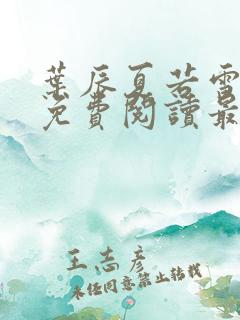 葉辰夏若雪
免費閱讀最
王志彥
未經同意禁止轉載